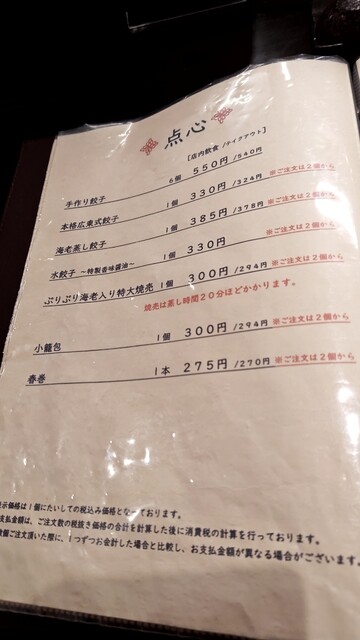 点心
[店内飲食 /テイクアウト]
手作り餃子 6個 550円 /540円
本格広東式餃子 1個 330円 /324円 ※ご注文は2個から
海老蒸し餃子 1個 385円 /378円 ※ご注文は2個から
水餃子 ～特製香味醤油～ 1個 330円 ※ご注文は2個から
ぷりぷり海老入り特大焼売 1個 300円 /294円 ※ご注文は2個から
焼売は蒸し時間20分ほどかかります。
小籠包 1個 300円 /294円 ※ご注文は2個から
春巻 1本 275円 /270円 ※ご注文は2個から
示価格は1個にたいしての税込み価格となっております。
支払金額は、ご注文数の税抜き価格の合計を計算した後に消費税の計算を行っております。
数個ご注文頂いた際に、1つずつお会計した場合と比較し、お支払金額が異なる場合がございます。